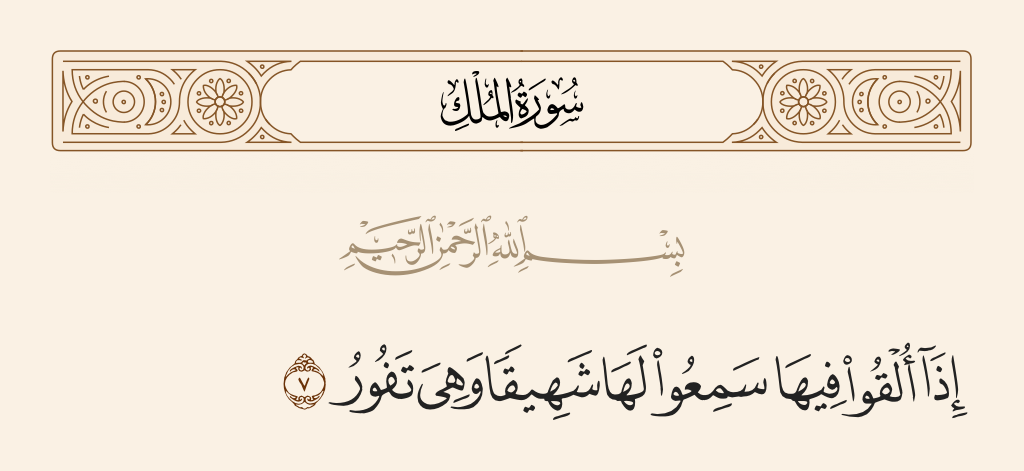 سُورَةُ المُلْكِ
بِسْمِ ٱللَّهِ ٱلرَّحْمَٰنِ ٱلرَّحِيمِ
إِذَآ أُلْقُوا۟ فِيهَا سَمِعُوا۟ لَهَا شَهِيقًا وَهِىَ تَفُورُ ٧